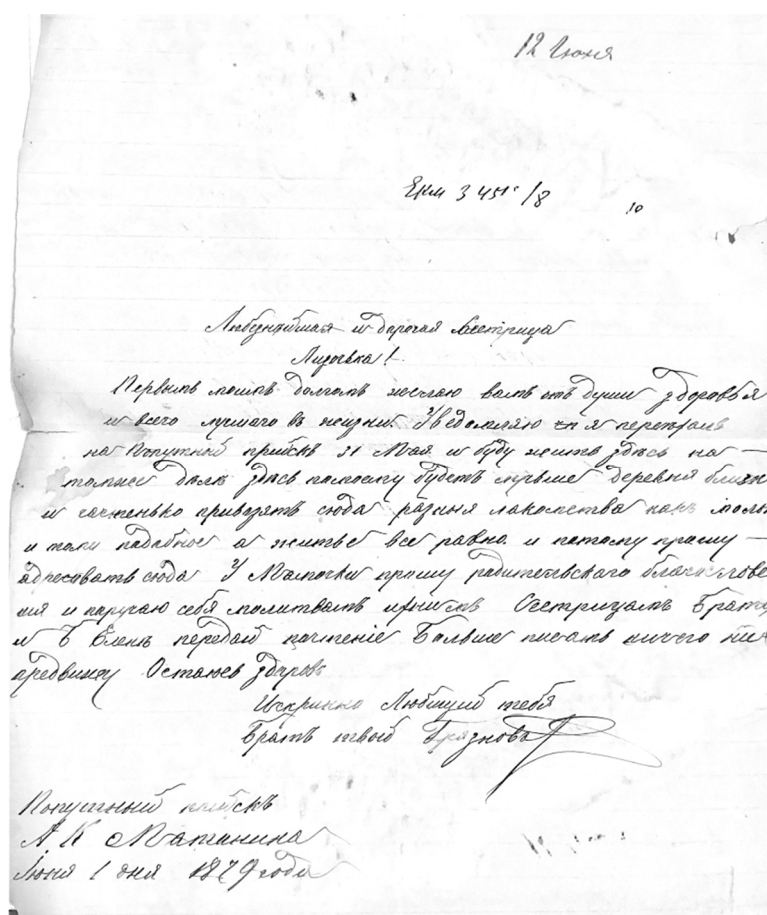 12 Июня
ЕКМ 3451/8
10
Любезнѣйшая и дорогая Сестрица
Лидочька!
Первымъ моимъ долгомъ желаю вамъ отъ души здоровья
и всего лучшаго въ жизни Уведомляю я переехалъ
на Попутный прiискъ 31 Мая и буду жить здѣсь на
здѣсь будетъ лучьше деревня близко
и частенько привозятъ сюда разныя лакомства какъ
и тому подобное а житье все равно и потому прошу
адресовать сюда У Мамочки прошу родительскаго благослове
ния и поручаю себя молитвамъ Сестрицамъ
и Еленѣ передай почтенiе Больше писать ничего не
предвижу Остаюсь здоровъ
Искринно Любящiй тебя
Братъ твой Грязновъ
Попутный прiискъ
А. К Матанина
Июня 1 дня 1879 года